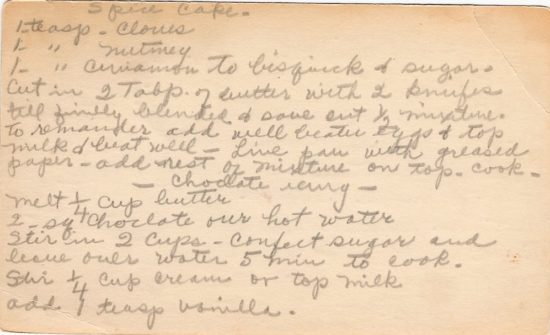 Spice Cake.
1-teasp - Cloves
1- " nutmeg
1- " cinnamon to bisquick & sugar.
Cut in 2 Tabp. of butter with 2 knives
till finely blended & save out ½ mixture.
to remander add well beaten eggs & top
milk & beat well - Line pan with greased
paper - add rest of mixture on top. cook -
- Choclate icing -
melt ¼ cup butter
2 - sq choclate our hot water
Stir in 2 cups - confect sugar and
leave over water 5 min to cook.
Stir ¼ cup cream or top milk
add 1 teasp vanilla.